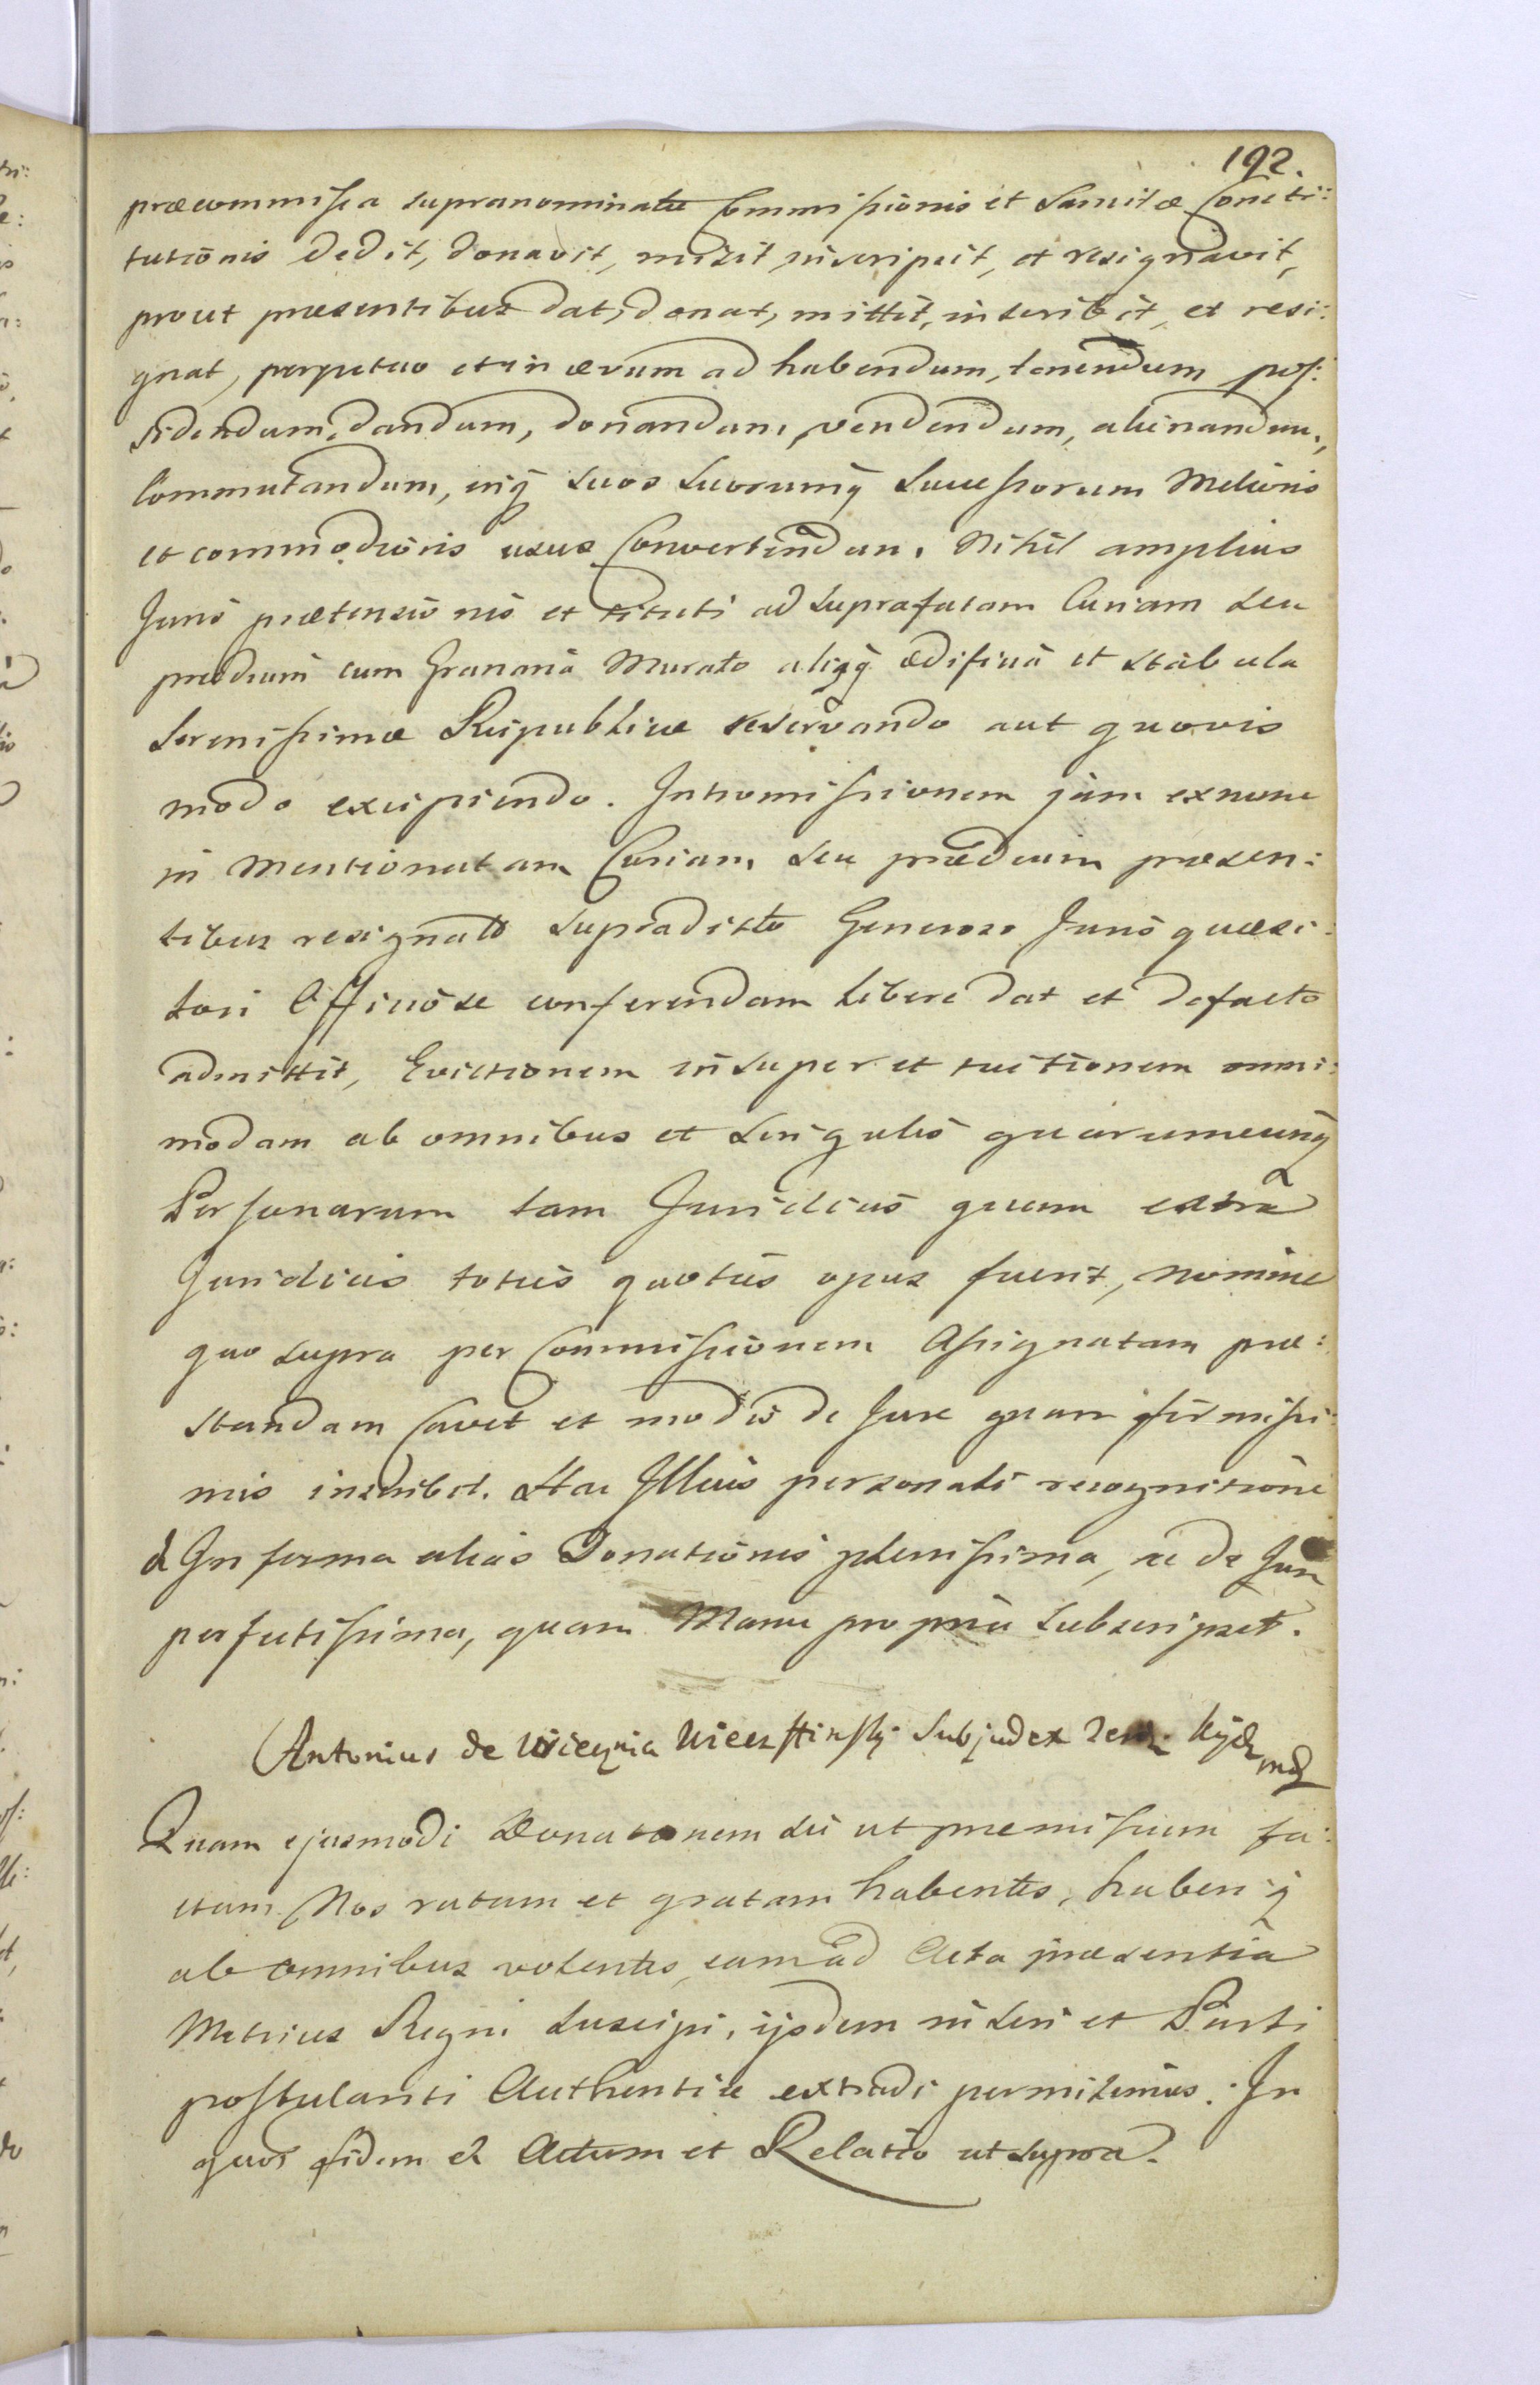 192.
præcommissa supranominatæ Commissionis et Sancitæ Consti:
tutionis dedit, donavit, misit, inscripsit, et resignavit,
prout præsentibus dat, donat, mittit, inscribit, et resi:
gnat, perpetuo et in ævum ad habendum, tenendum pos:
sidendum, dandum, donandum, vendendum, alienandum,
Commutandum, inq suos suorumq Successorum Melioris
et commodioris usus Convertendum. Nihil amplius
Juris prætensionis et tituli ad suprafatam Curiam seu
prædium cum Granario Murato aliisq ædificiis et stabula
Serenissimæ Reipublicæ reservando aut quovis
modo excipiendo. Intromissionem jam exnunc
in mentionatam Curiam seu prædium præsen:
tibus resignato supradicto Generoso Juris quæsi:
tori Officiose conferendam libere dat et defacto
admittit, Evictionem insuper et tuitionem omni:
modam ab omnibus et singulis quarumcunq
Personarum tam Juridicis quam extra
Juridicis toties quoties opus fuerit, nomine
quo supra per Commissionem Assignatam præ:
standam Cavet et modis de Jure quam firmissi:
mis inscribit. Hac Illius personali recognitione
& In forma alias Donationis plenissima, ac de Jure
perfectissima, quam Manu propria subscripsit.
Antonius de Subjudex
Quam ejusmodi Donationem sic ut præmissum fa:
ctam Nos ratam et gratam habentes, haberiq
ab omnibus volentes, eam ad Acta præsentia
Metrices Regni suscipi, iisdem inseri et Parti
postulanti Authentice extradi permisimus. In
quor fidem & Actum et Relatio ut supra.